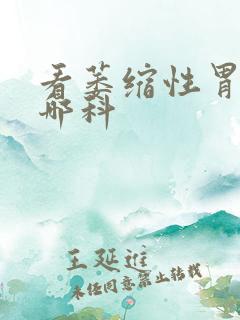 看萎缩性胃
哪科
王延进
未经同意禁止转载